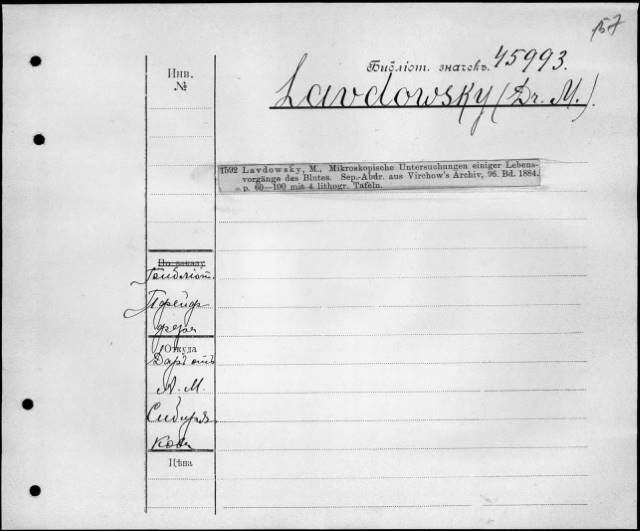 157
Инв.
№
Библіот. значекъ. 45993.
Lavdowsky (Dr. M.).
1592 Lavdowsky, M., Mikroskopische Untersuchungen einiger Lebens-
vorgänge des Blutes. Sep.-Abdr. aus Virchow's Archiv, 96. Bd. 1884.
p. 60—100 mit 4 lithogr. Tafeln.
По заказу
библіот.
Пфейф
фера
Откуда
Даръ отъ
А. М.
Сибиря
кова
Цѣна